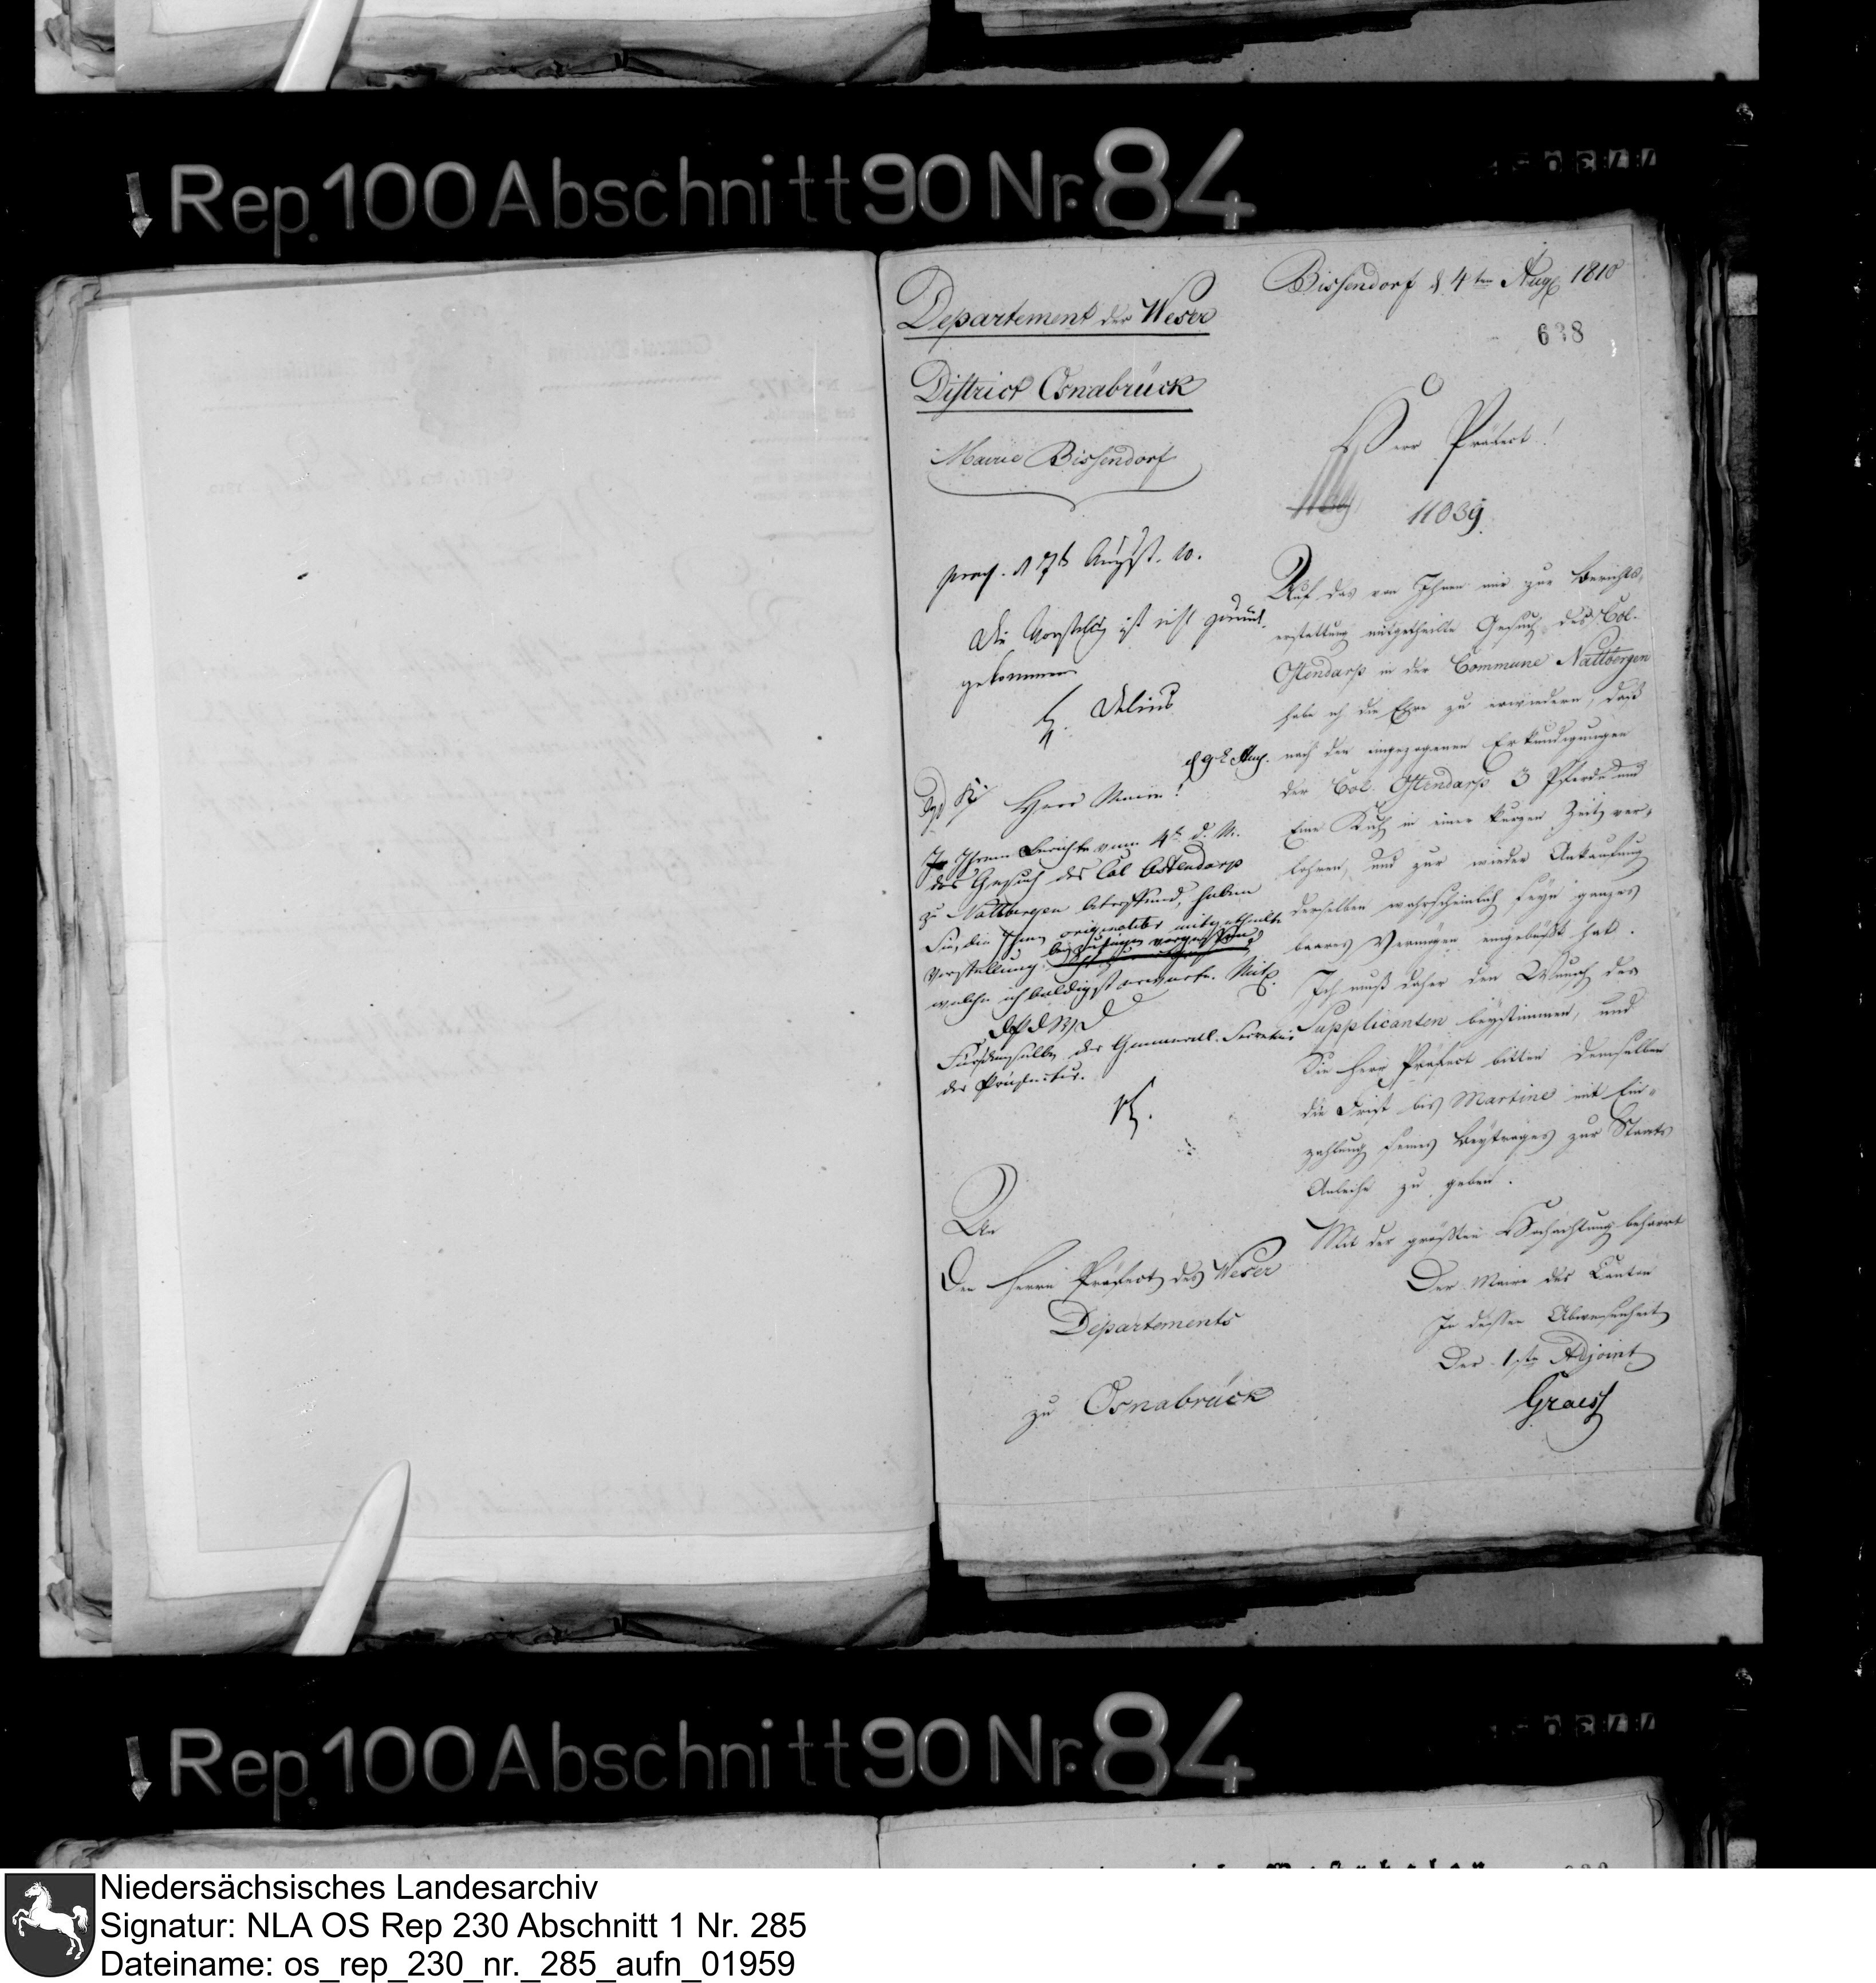 Rep. 100 Abschnitt 90 Nr. 84
Departement der Weser
District Osnabrück
Mairie Bissendorf
Bissendorf d 4ten Aug 1810
638
Herr Präfect!
11039
praes. d 7t August. 10.
Die Vorstellg ist nicht zurück
gekommen
Delius
d 9t Aug.
Herr Maire!
Ihrem Berichte vom 4t d. M.
das Gesuch des Col Ostendarp
zu Nattbergen betreffend, haben
Sie, die Ihnen originaliter mitgetheilte
Vorstellung beyzufügen vergessen,
welche ich baldigst erwarte. Mit
der General-Secretär
der Präfectur.
An
Den Herrn Präfect des Weser
Departements
zu Osnabrück
Auf das von Ihnen mir zur Berichts-
erstattung mitgetheilte Gesuch des Col.
Ostendarp in der Commune Nattbergen
habe ich die Ehre zu erwiedern, daß
nach den eingezogenen Erkundigungen
der Col. Ostendarp 3 Pferde und
Eine Kuh in einer kurzen Zeit ver-
lohren, und zur wieder Ankaufung
derselben wahrscheinlich seyn ganzes
baares Vermögen eingebüßt hat.
Ich muß daher den Wunsch des
Supplicanten beystimmen, und
Sie Herr Präfect bitten demselben
die Frist bis Martini mit Ein-
zahlung seines Beytrages zur Staats
Anleihe zu geben.
Mit der größten Hochachtung beharrt
Der Maire des Canton
In dessen Abwesenheit
Der 1ste Adjoint
Graeff
Rep. 100 Abschnitt 90 Nr. 84
Niedersächsisches Landesarchiv
Signatur: NLA OS Rep 230 Abschnitt 1 Nr. 285
Dateiname: os_rep_230_nr._285_aufn_01959